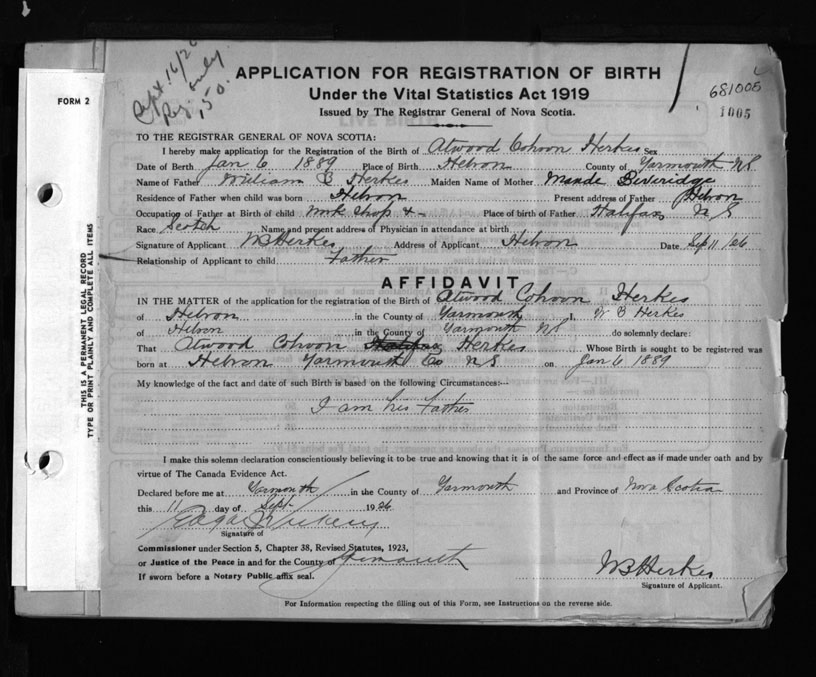 FORM 2
THIS IS A PERMANENT LEGAL RECORD
TYPE OR PRINT PLAINLY AND COMPLETE ALL ITEMS
Sept. 16/26
only
.50.
APPLICATION FOR REGISTRATION OF BIRTH
Under the Vital Statistics Act 1919
Issued by The Registrar General of Nova Scotia.
681005
1005
TO THE REGISTRAR GENERAL OF NOVA SCOTIA:
I hereby make application for the Registration of the Birth of Atwood Cohoon Herkes Sex
Date of Birth Jan 6 1889 Place of Birth Hebron County of Yarmouth NS
Name of Father William B Herkes Maiden Name of Mother Maude Beveridge
Residence of Father when child was born Hebron Present address of Father Hebron
Occupation of Father at Birth of child Place of birth of Father Halifax N S
Race Scotch Name and present address of Physician in attendance at birth
Signature of Applicant WB Herkes Address of Applicant Hebron Date Sep 11/26
Relationship of Applicant to child Father
AFFIDAVIT
IN THE MATTER of the application for the registration of the Birth of Atwood Cohoon Herkes
of Hebron in the County of Yarmouth I, W B Herkes
of Hebron in the County of Yarmouth NS do solemnly declare:
That Atwood Cohoon Halifax Herkes Whose Birth is sought to be registered was
born at Hebron Yarmouth Co N S on Jan 6 1889
My knowledge of the fact and date of such Birth is based on the following Circumstances:—
I am his Father
I make this solemn declaration conscientiously believing it to be true and knowing that it is of the same force and effect as if made under oath and by
virtue of The Canada Evidence Act.
Declared before me at Yarmouth in the County of Yarmouth and Province of Nova Scotia
this 11 day of Sept 1926
Signature of
Commissioner under Section 5, Chapter 38, Revised Statutes, 1923,
or Justice of the Peace in and for the County of Yarmouth
If sworn before a Notary Public affix seal.
WB Herkes
Signature of Applicant.
For Information respecting the filling out of this Form, see Instructions on the reverse side.